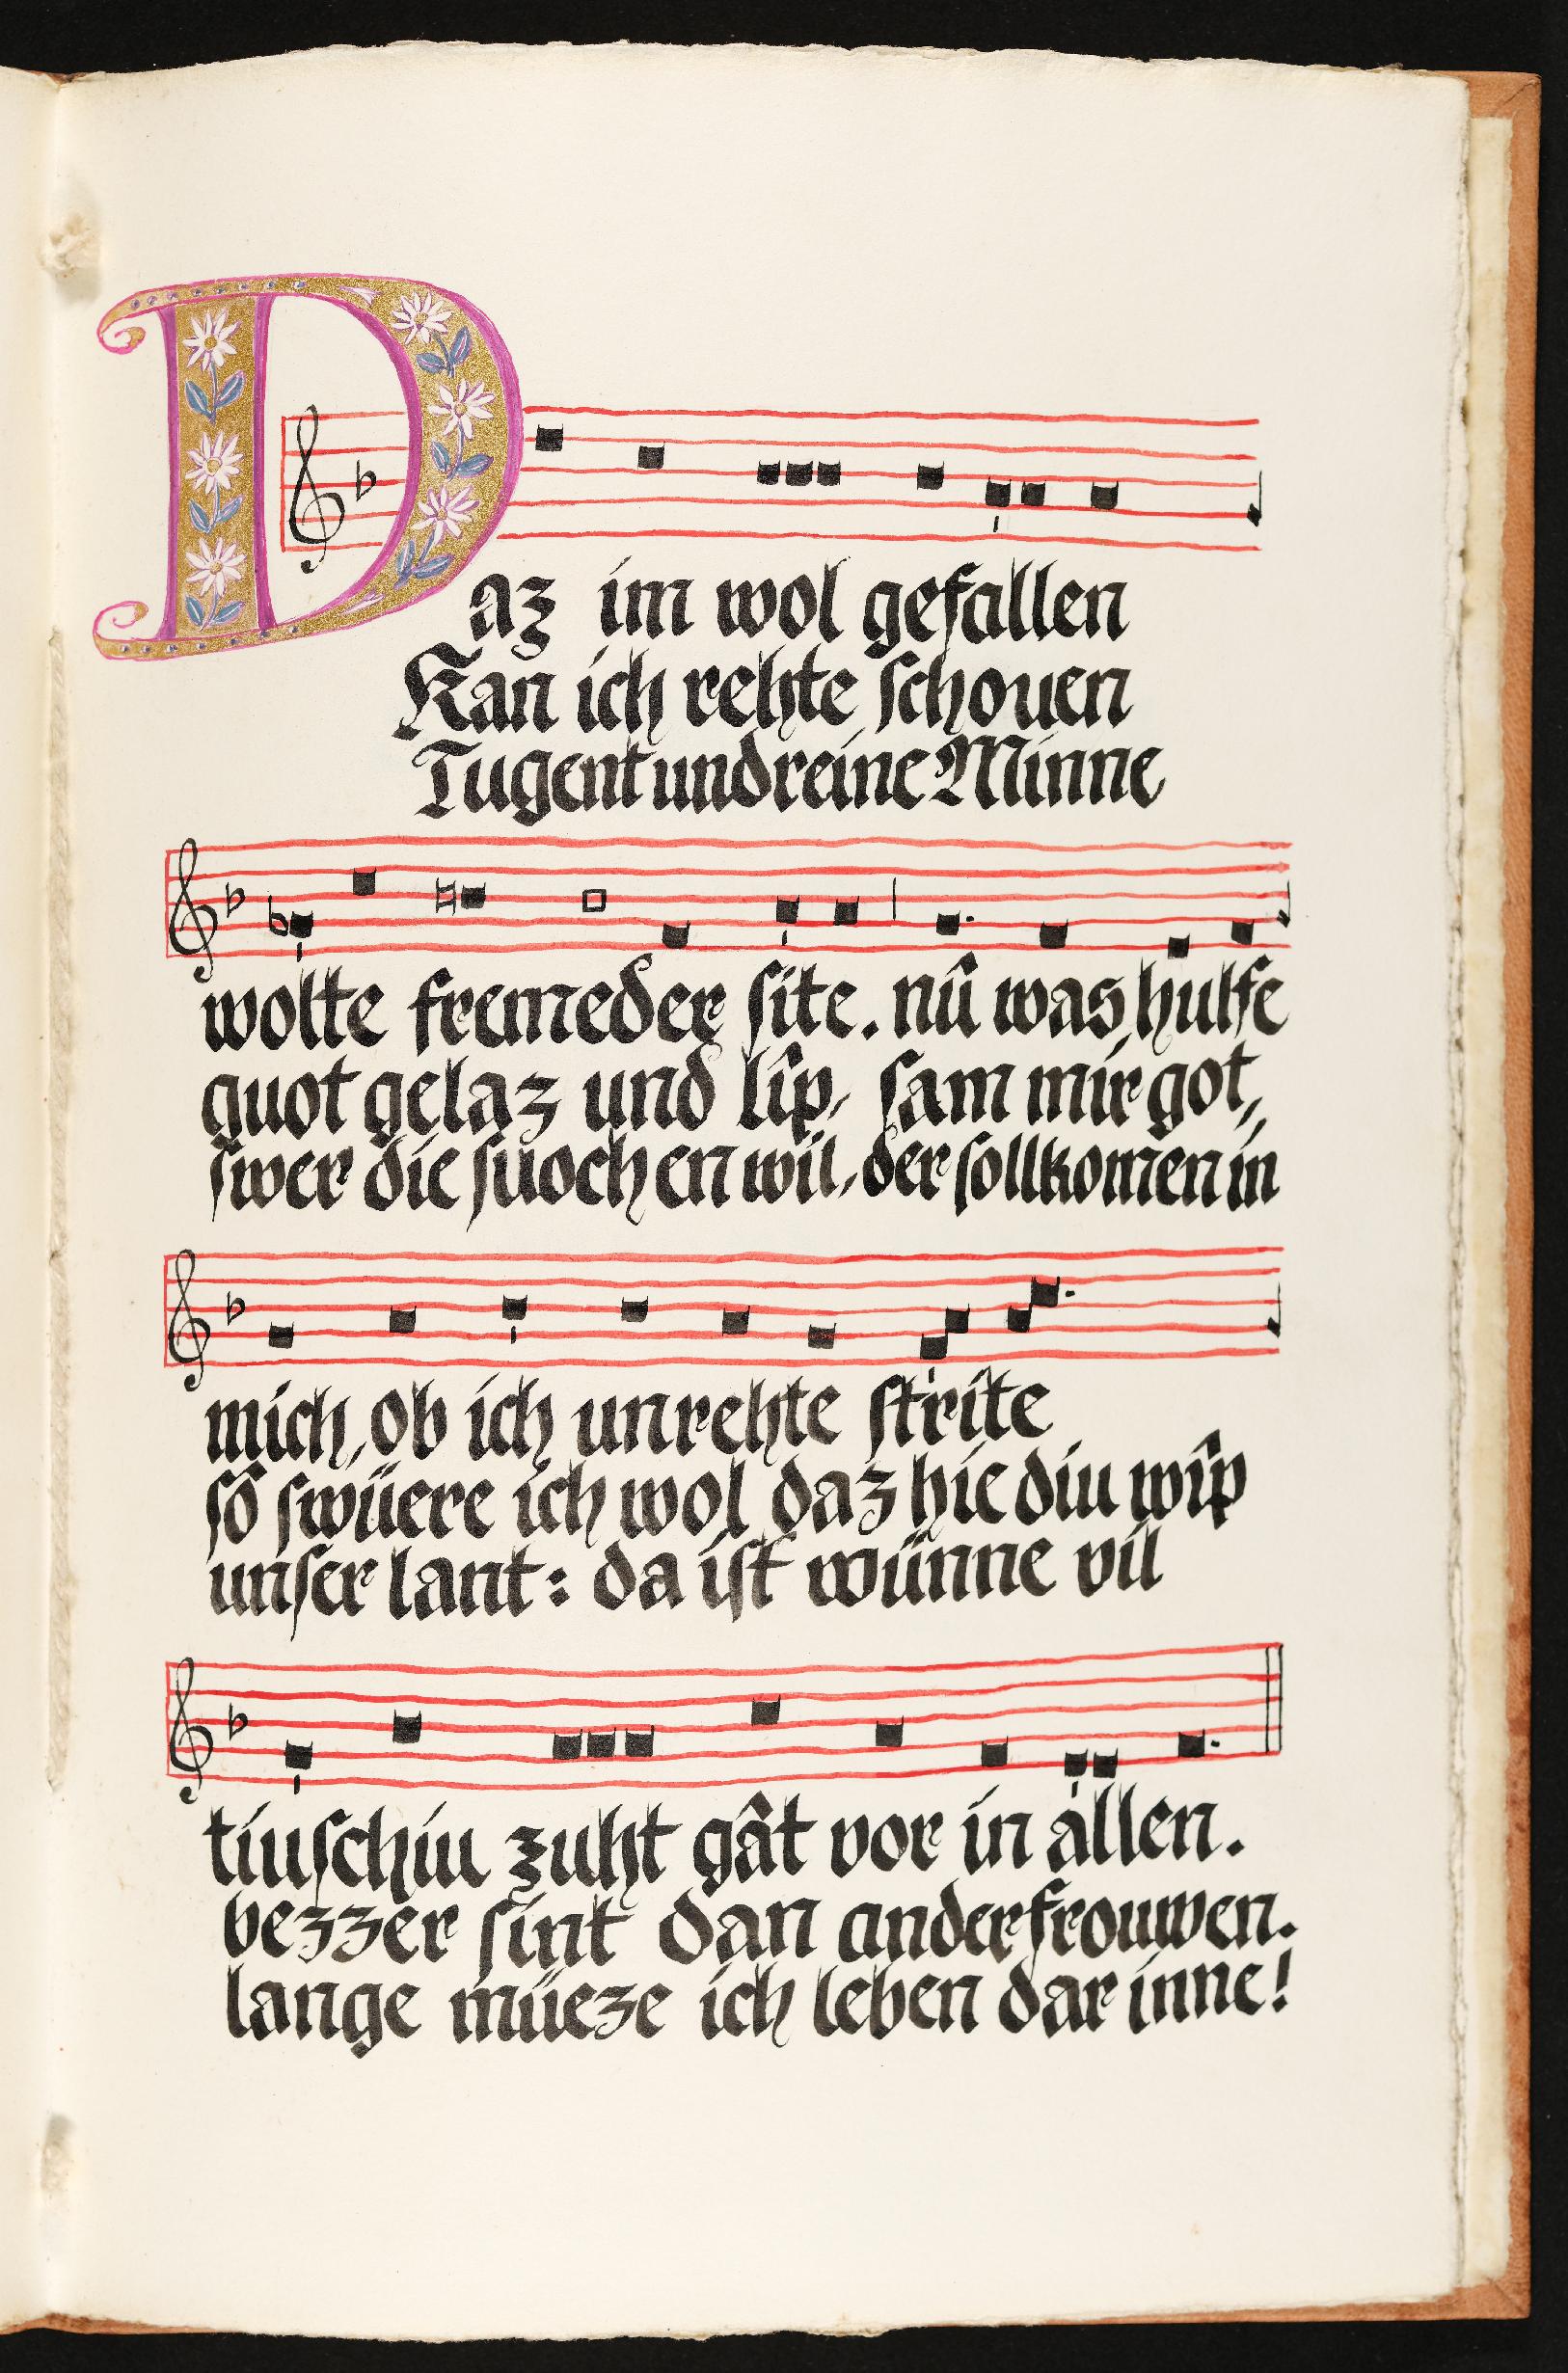 Daz im wol gefallen
Kan ich rehte schouen
Tugent und reine Minne
wolte fremeder site. nû was hulfe
guot gelaz und lîp, sam mir got,
swer die suochen wil, der soll komen in
mich, ob ich unrehte strite
sô swüere ich wol daz hie diu wîp
unser lant: da ist wünne vil
tiuschiu zuht gât vor in allen.
bezzer sint dan ander frouwen.
lange müeze ich leben dar inne!